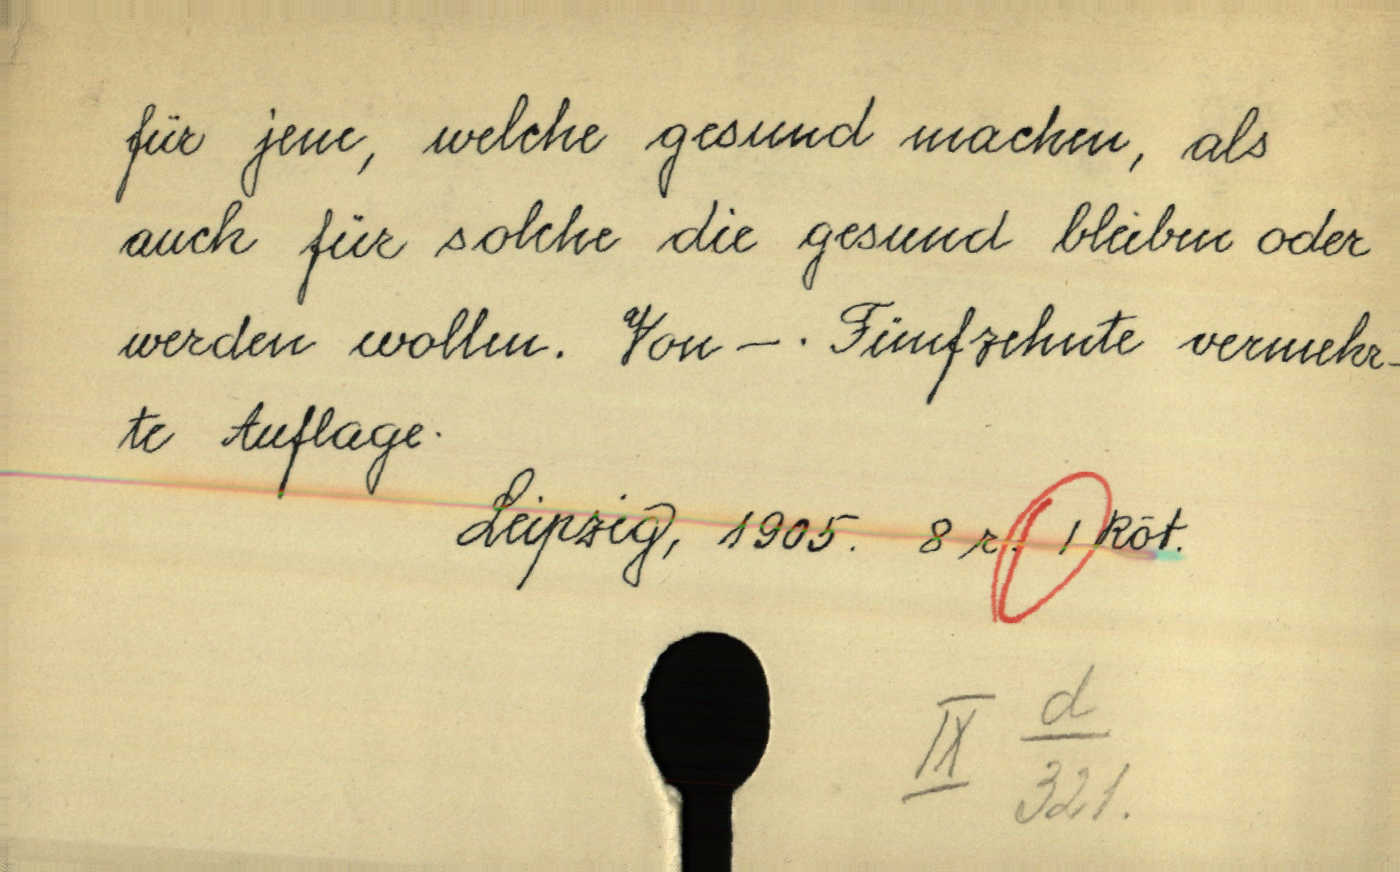 für jene, welche gesund machen, als
auch für solche die gesund bleiben oder
werden wollen. Von —. Fünfzehnte vermehr-
te Auflage.
Leipzig, 1905. 8 r. 1 Köt.
IX d/321.